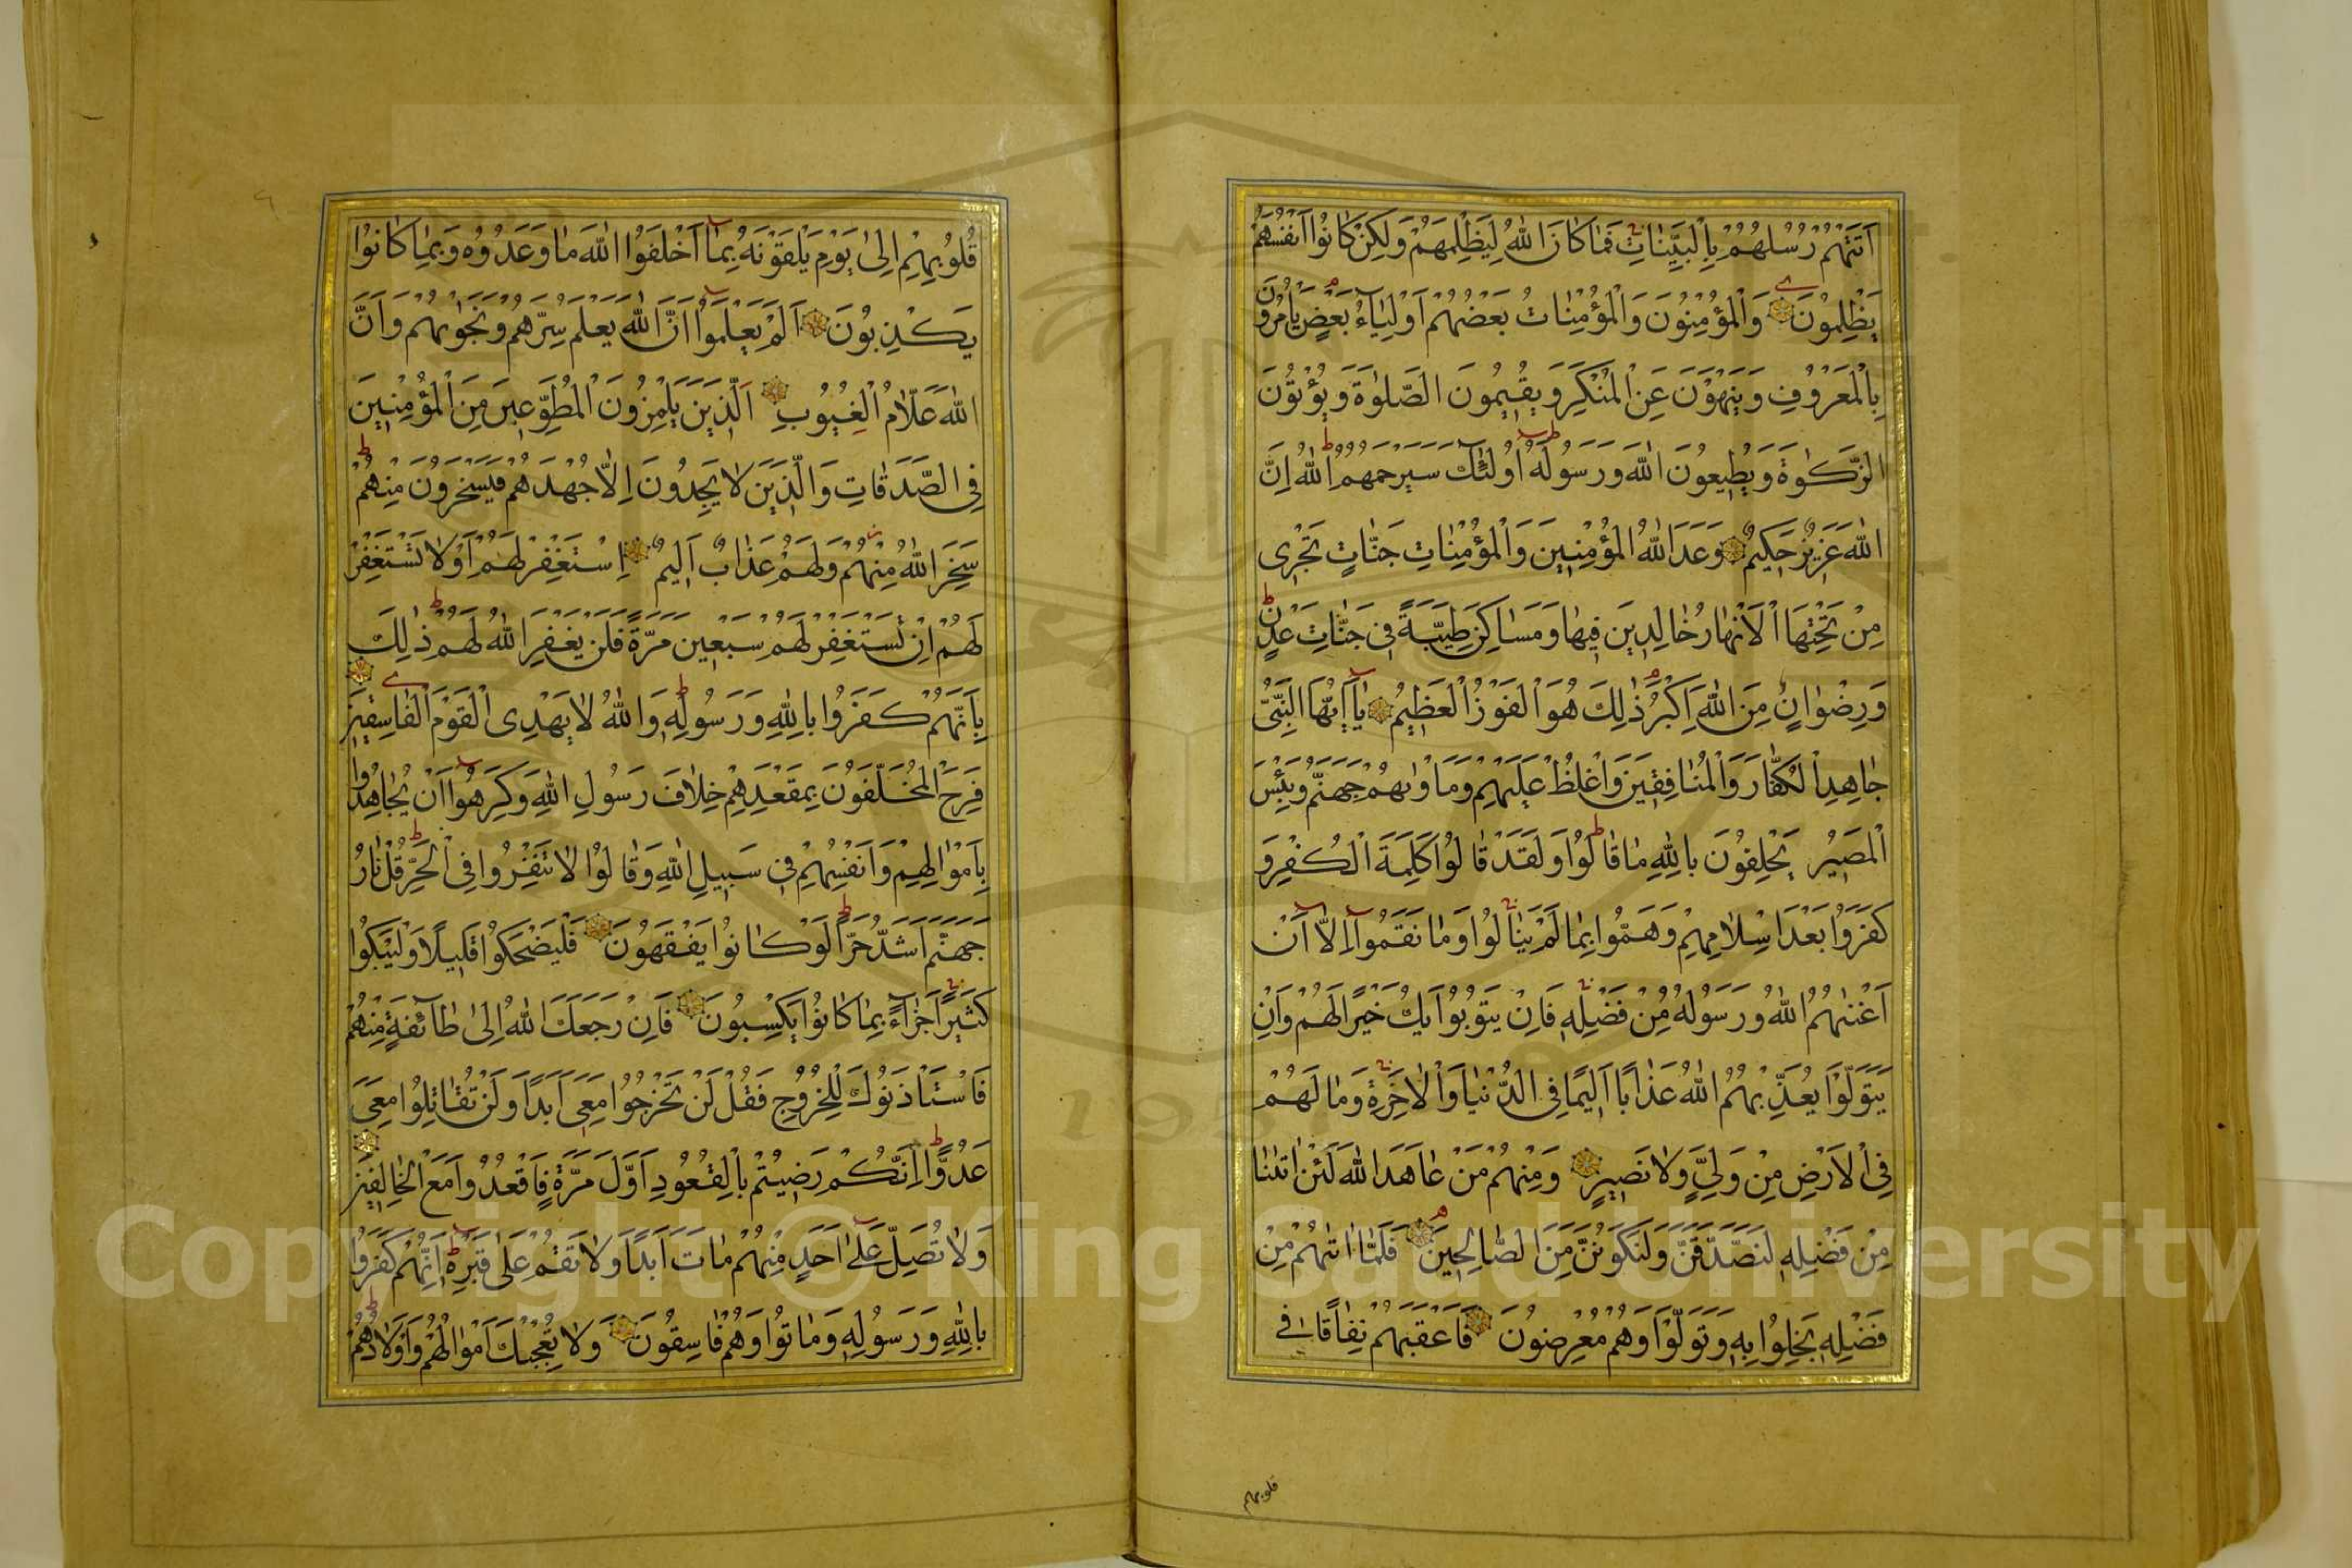 اَتَتْهُمْ رُسُلُهُمْ بِالْبَيِّنَاتِ فَمَا كَانَ اللّٰهُ لِيَظْلِمَهُمْ وَلٰكِنْ كَانُوا اَنْفُسَهُمْ
يَظْلِمُونَ وَالْمُؤْمِنُونَ وَالْمُؤْمِنَاتُ بَعْضُهُمْ اَوْلِيَاءُ بَعْضٍ يَاْمُرُونَ
بِالْمَعْرُوفِ وَيَنْهَوْنَ عَنِ الْمُنْكَرِ وَيُقِيمُونَ الصَّلٰوةَ وَيُؤْتُونَ
الزَّكٰوةَ وَيُطِيعُونَ اللّٰهَ وَرَسُولَهُ اُولٰئِكَ سَيَرْحَمُهُمُ اللّٰهُ اِنَّ
اللّٰهَ عَزِيزٌ حَكِيمٌ وَعَدَ اللّٰهُ الْمُؤْمِنِينَ وَالْمُؤْمِنَاتِ جَنَّاتٍ تَجْرِى
مِنْ تَحْتِهَا الْاَنْهَارُ خَالِدِينَ فِيهَا وَمَسَاكِنَ طَيِّبَةً فِى جَنَّاتِ عَدْنٍ
وَرِضْوَانٌ مِنَ اللّٰهِ اَكْبَرُ ذٰلِكَ هُوَ الْفَوْزُ الْعَظِيمُ يَا اَيُّهَا النَّبِىُّ
جَاهِدِ الْكُفَّارَ وَالْمُنَافِقِينَ وَاغْلُظْ عَلَيْهِمْ وَمَاْوٰيهُمْ جَهَنَّمُ وَبِئْسَ
الْمَصِيرُ يَحْلِفُونَ بِاللّٰهِ مَا قَالُوا وَلَقَدْ قَالُوا كَلِمَةَ الْكُفْرِ وَ
كَفَرُوا بَعْدَ اِسْلَامِهِمْ وَهَمُّوا بِمَا لَمْ يَنَالُوا وَمَا نَقَمُوا اِلَّا اَنْ
اَغْنٰيهُمُ اللّٰهُ وَرَسُولُهُ مِنْ فَضْلِهِ فَاِنْ يَتُوبُوا يَكُ خَيْرًا لَهُمْ وَاِنْ
يَتَوَلَّوْا يُعَذِّبْهُمُ اللّٰهُ عَذَابًا اَلِيمًا فِى الدُّنْيَا وَالْاٰخِرَةِ وَمَا لَهُمْ
فِى الْاَرْضِ مِنْ وَلِىٍّ وَلَا نَصِيرٍ وَمِنْهُمْ مَنْ عَاهَدَ اللّٰهَ لَئِنْ اٰتٰينَا
مِنْ فَضْلِهِ لَنَصَّدَّقَنَّ وَلَنَكُونَنَّ مِنَ الصَّالِحِينَ فَلَمَّا اٰتٰيهُمْ مِنْ
فَضْلِهِ بَخِلُوا بِهِ وَتَوَلَّوْا وَهُمْ مُعْرِضُونَ فَاَعْقَبَهُمْ نِفَاقًا فِى
قلوبهم
قُلُوبِهِمْ اِلٰى يَوْمِ يَلْقَوْنَهُ بِمَا اَخْلَفُوا اللّٰهَ مَا وَعَدُوهُ وَبِمَا كَانُوا
يَكْذِبُونَ اَلَمْ يَعْلَمُوا اَنَّ اللّٰهَ يَعْلَمُ سِرَّهُمْ وَنَجْوٰيهُمْ وَاَنَّ
اللّٰهَ عَلَّامُ الْغُيُوبِ اَلَّذِينَ يَلْمِزُونَ الْمُطَّوِّعِينَ مِنَ الْمُؤْمِنِينَ
فِى الصَّدَقَاتِ وَالَّذِينَ لَا يَجِدُونَ اِلَّا جُهْدَهُمْ فَيَسْخَرُونَ مِنْهُمْ
سَخِرَ اللّٰهُ مِنْهُمْ وَلَهُمْ عَذَابٌ اَلِيمٌ اِسْتَغْفِرْ لَهُمْ اَوْ لَا تَسْتَغْفِرْ
لَهُمْ اِنْ تَسْتَغْفِرْ لَهُمْ سَبْعِينَ مَرَّةً فَلَنْ يَغْفِرَ اللّٰهُ لَهُمْ ذٰلِكَ
بِاَنَّهُمْ كَفَرُوا بِاللّٰهِ وَرَسُولِهِ وَاللّٰهُ لَا يَهْدِى الْقَوْمَ الْفَاسِقِينَ
فَرِحَ الْمُخَلَّفُونَ بِمَقْعَدِهِمْ خِلَافَ رَسُولِ اللّٰهِ وَكَرِهُوا اَنْ يُجَاهِدُوا
بِاَمْوَالِهِمْ وَاَنْفُسِهِمْ فِى سَبِيلِ اللّٰهِ وَقَالُوا لَا تَنْفِرُوا فِى الْحَرِّ قُلْ نَارُ
جَهَنَّمَ اَشَدُّ حَرًّا لَوْ كَانُوا يَفْقَهُونَ فَلْيَضْحَكُوا قَلِيلًا وَلْيَبْكُوا
كَثِيرًا جَزَاءً بِمَا كَانُوا يَكْسِبُونَ فَاِنْ رَجَعَكَ اللّٰهُ اِلٰى طَائِفَةٍ مِنْهُمْ
فَاسْتَاْذَنُوكَ لِلْخُرُوجِ فَقُلْ لَنْ تَخْرُجُوا مَعِىَ اَبَدًا وَلَنْ تُقَاتِلُوا مَعِىَ
عَدُوًّا اِنَّكُمْ رَضِيتُمْ بِالْقُعُودِ اَوَّلَ مَرَّةٍ فَاقْعُدُوا مَعَ الْخَالِفِينَ
وَلَا تُصَلِّ عَلٰى اَحَدٍ مِنْهُمْ مَاتَ اَبَدًا وَلَا تَقُمْ عَلٰى قَبْرِهِ اِنَّهُمْ كَفَرُوا
بِاللّٰهِ وَرَسُولِهِ وَمَاتُوا وَهُمْ فَاسِقُونَ وَلَا تُعْجِبْكَ اَمْوَالُهُمْ وَاَوْلَادُهُمْ
1957
Copyright © King Saud University